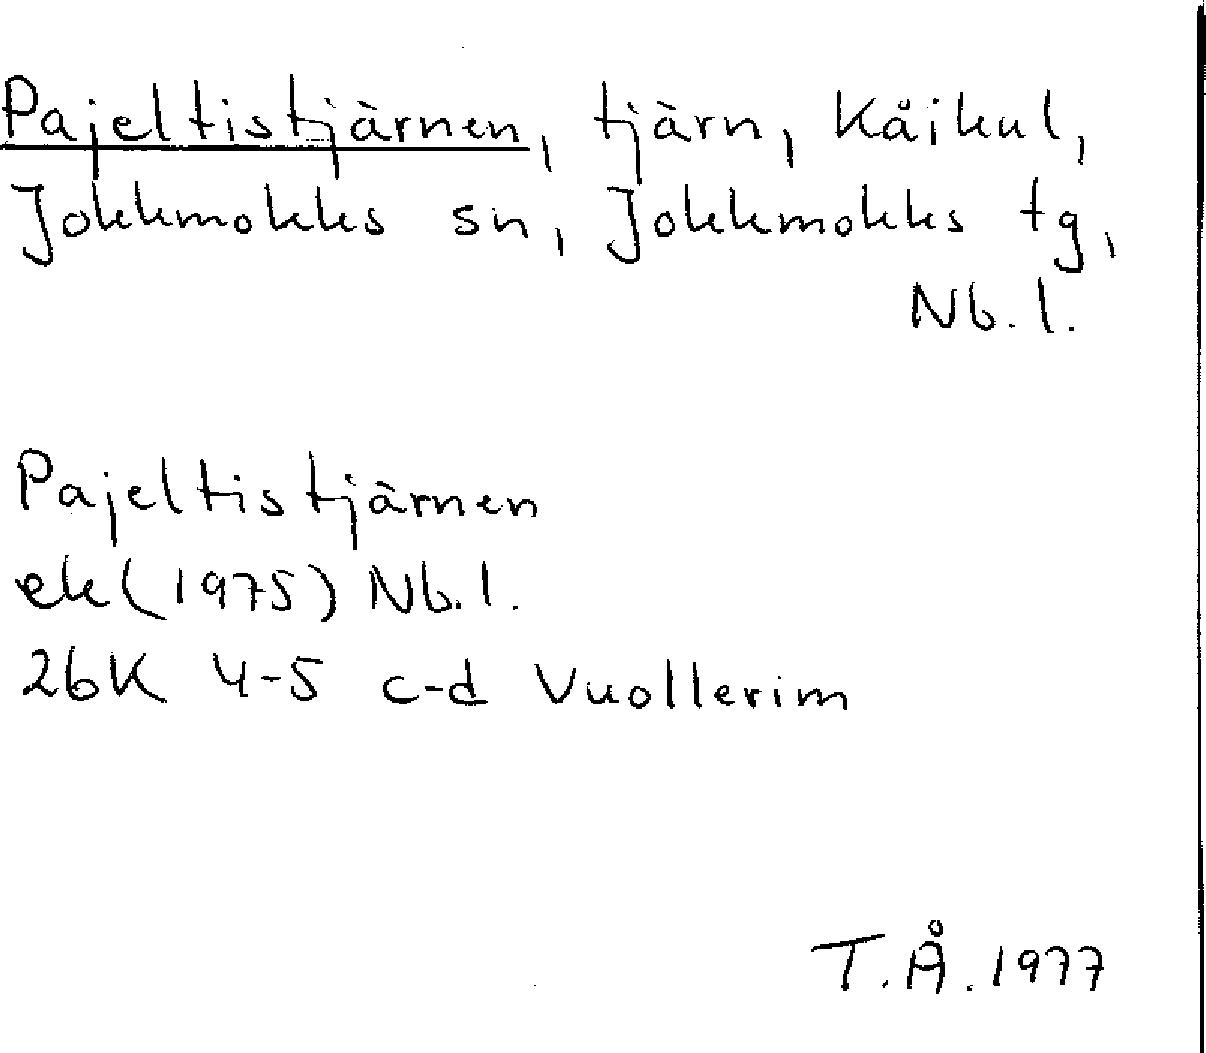 Pajeltistjärnen, tjärn, Kåikul,
Jokkmokks sn, Jokkmokks tg,
Nb. l.
Pajeltistjärnen
ek (1975) Nb. l.
26K 4-5 c-d Vuollerim
T.Å. 1977